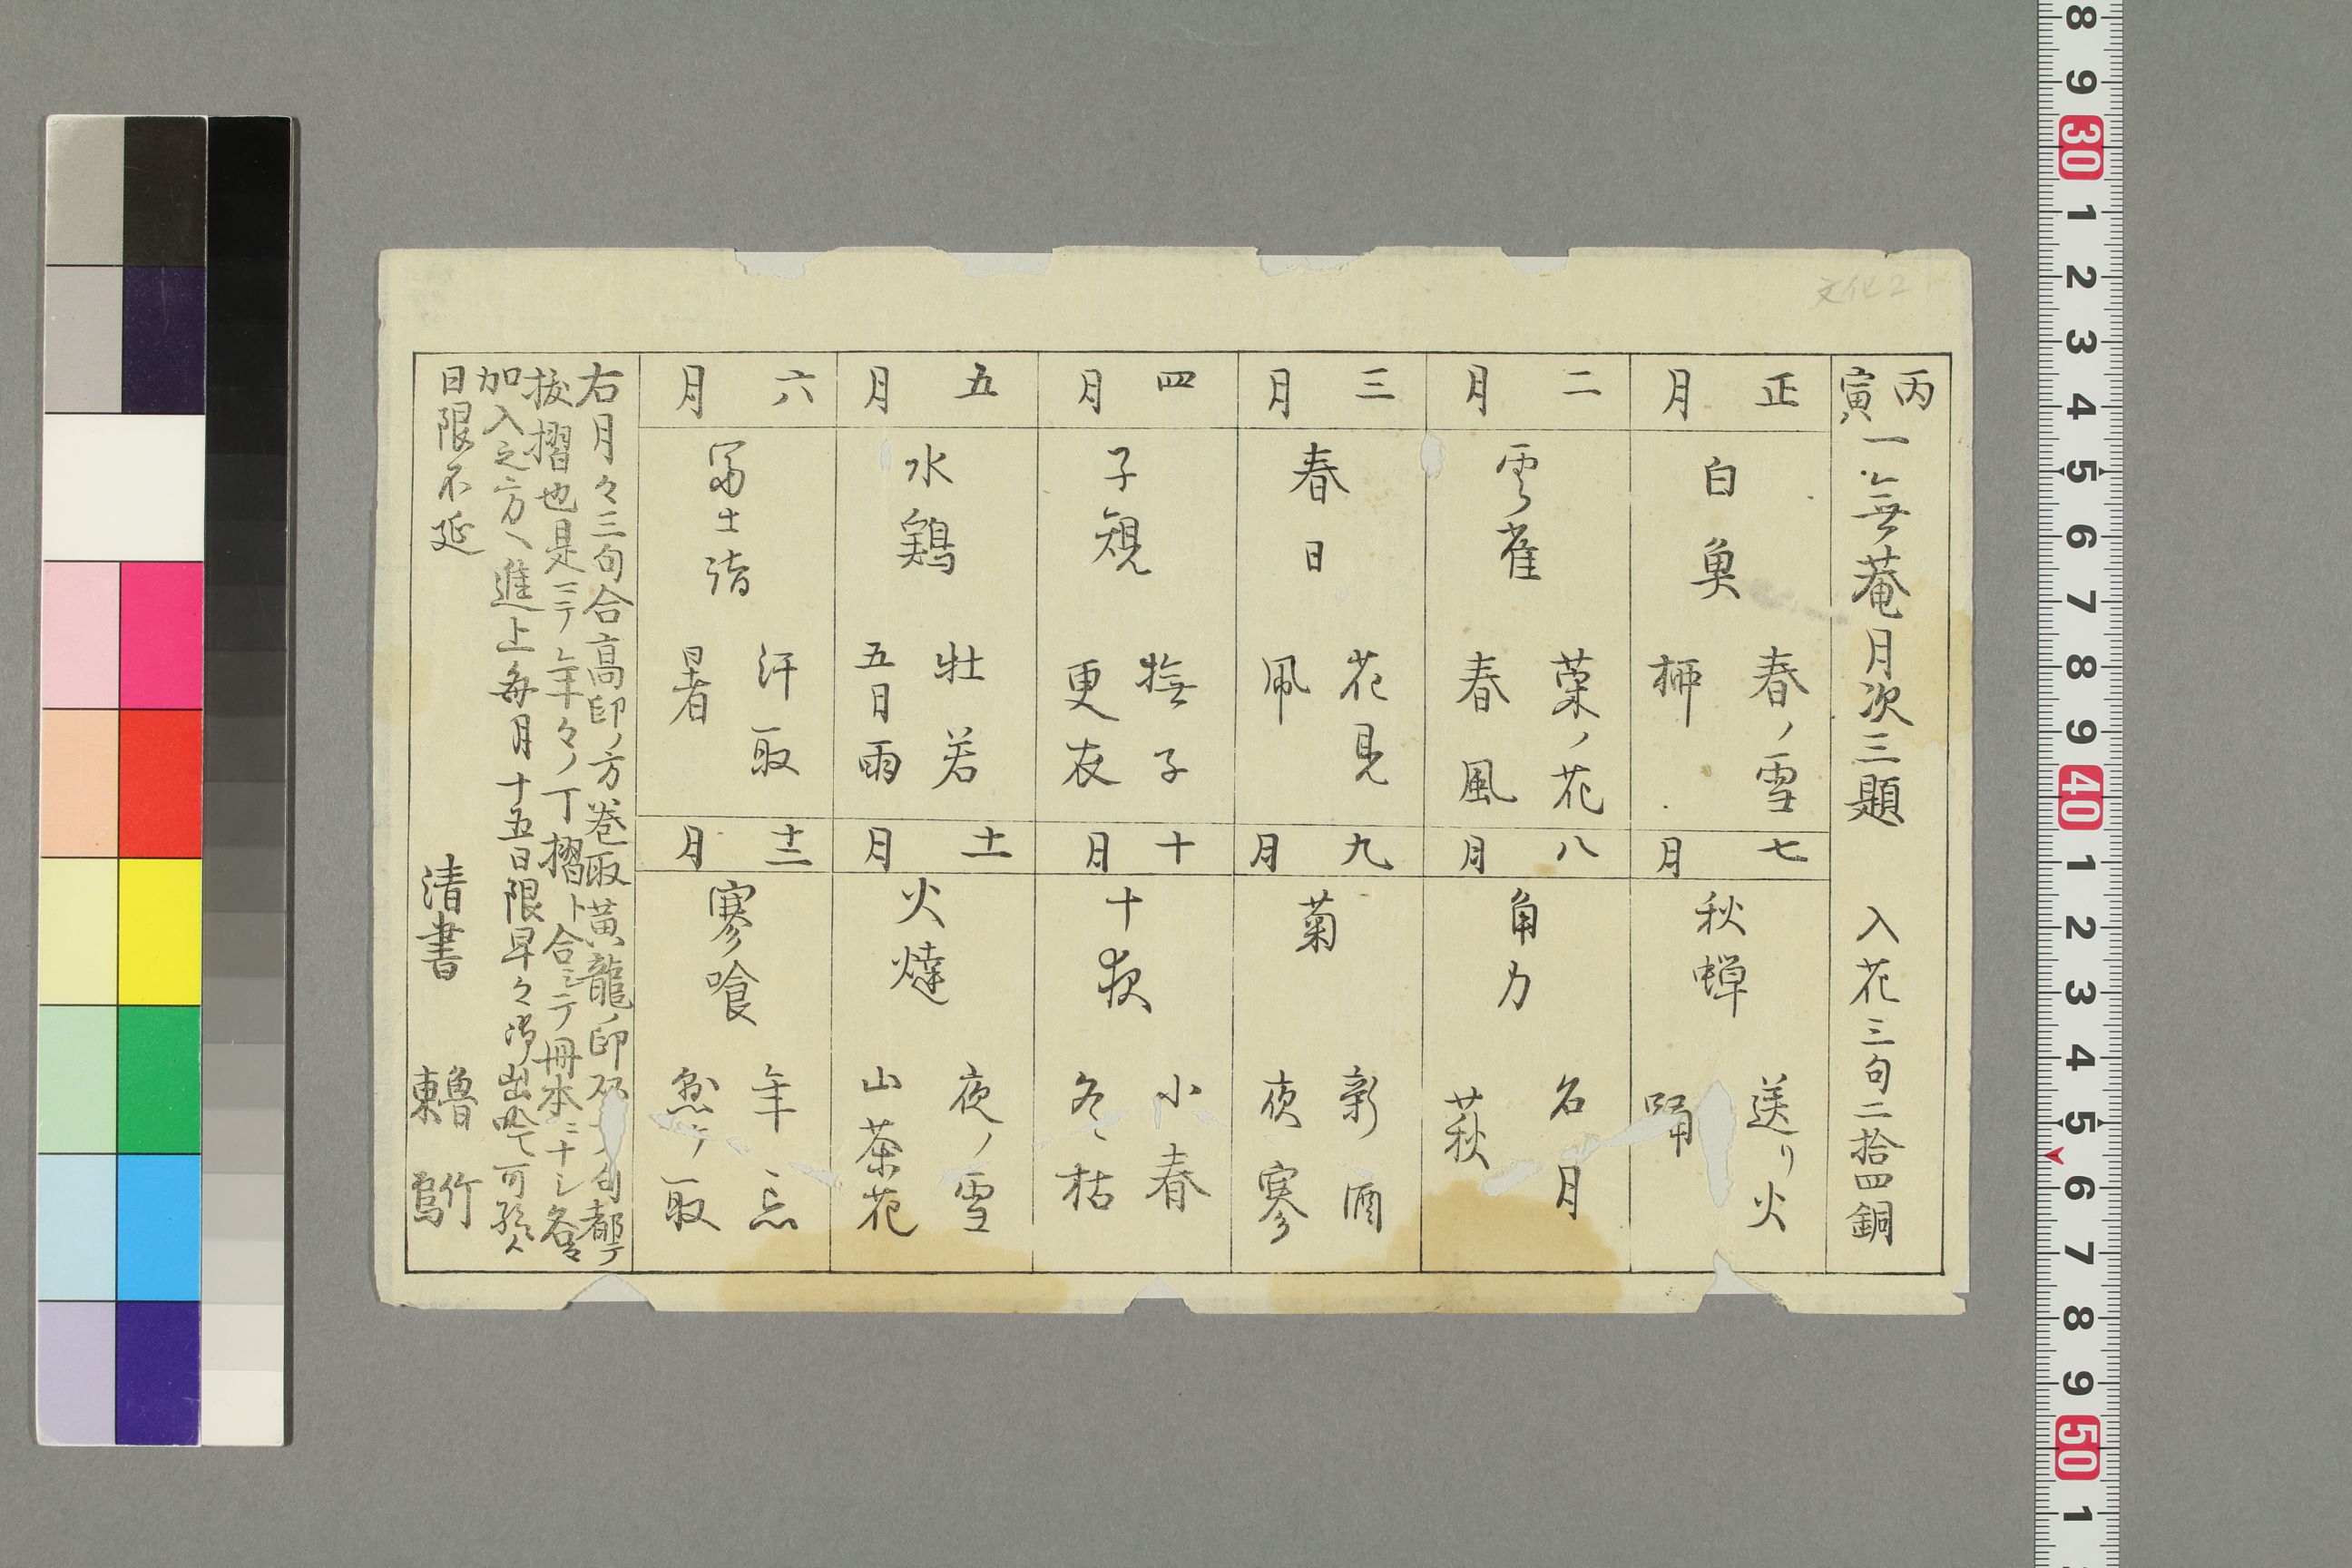 文化2
丙寅 一無菴月次三題 入花三句二拾四銅
正月
白魚
春ノ雪
柳
二月
雲雀
菜ノ花
春風
三月
春日
花見
凧
四月
子規
撫子
更衣
五月
水鶏
牡若
五月雨
六月
冨士詣
汗取
暑
七月
秋蝉
送リ火
踊
八月
角力
名月
萩
九月
菊
新酒
夜寒
十月
十夜
小春
冬枯
十一月
火燵
夜ノ雪
山茶花
十二月
寒喰
年忘
取
右月々三句合高印ノ方巻取黄龍ノ印 句都テ
抜摺也是ニテ年々ノ丁摺ト合シテ冊本ニナシ各々
加入之方ヘ進上毎月十五日限早々御出吟可
日限不延
清書 魯東 竹鴬
8 9 30 1 2 3 4 5 6 7 8 9 40 1 2 3 4 5 6 7 8 9 50 1